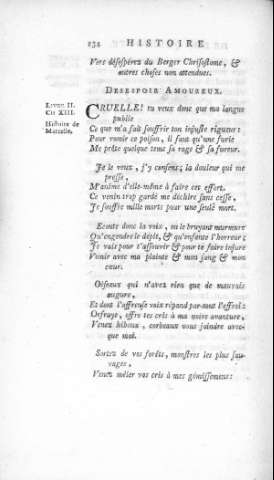 134 HISTOIRE
Vers désespérez du Berger Chrisostome, &
autres choses non attendues.
DESESPOIR AMOUREUX.
LIVRE II.
CH XIII.
Histoire de
Marcelle.
CRUELLE! tu veux donc que ma langue
publie
Ce que m'a fait souffrir ton injuste rigueur:
Pour vomir ce poison, il faut qu'une furie
Me prête quelque tems sa rage & sa fureur.
Je le veux, j'y consens; la douleur qui me
presse,
M'anime d'elle-même à faire cet effort.
Ce venin trop gardé me déchire sans cesse,
Je souffre mille morts pour une seule mort.
Ecoute donc la voix, ni le bruyant murmure
Qu'engendre le dépit, & qu'enfante l'horreur;
Je vais pour t'assouvir & pour te faire injure
Vomir avec ma plainte & mon sang & mon
cœur.
Oiseaux qui n'avez rien que de mauvais
augure,
Et dont l'affreuse voix répand par-tout l'effroi:
Orfraye, offre tes cris à ma noire avanture,
Venez hiboux, corbeaux vous joindre avec-
que moi.
Sortez de vos forêts, monstres les plus sau-
vages,
Venez mêler vos cris à mes gémissemens: